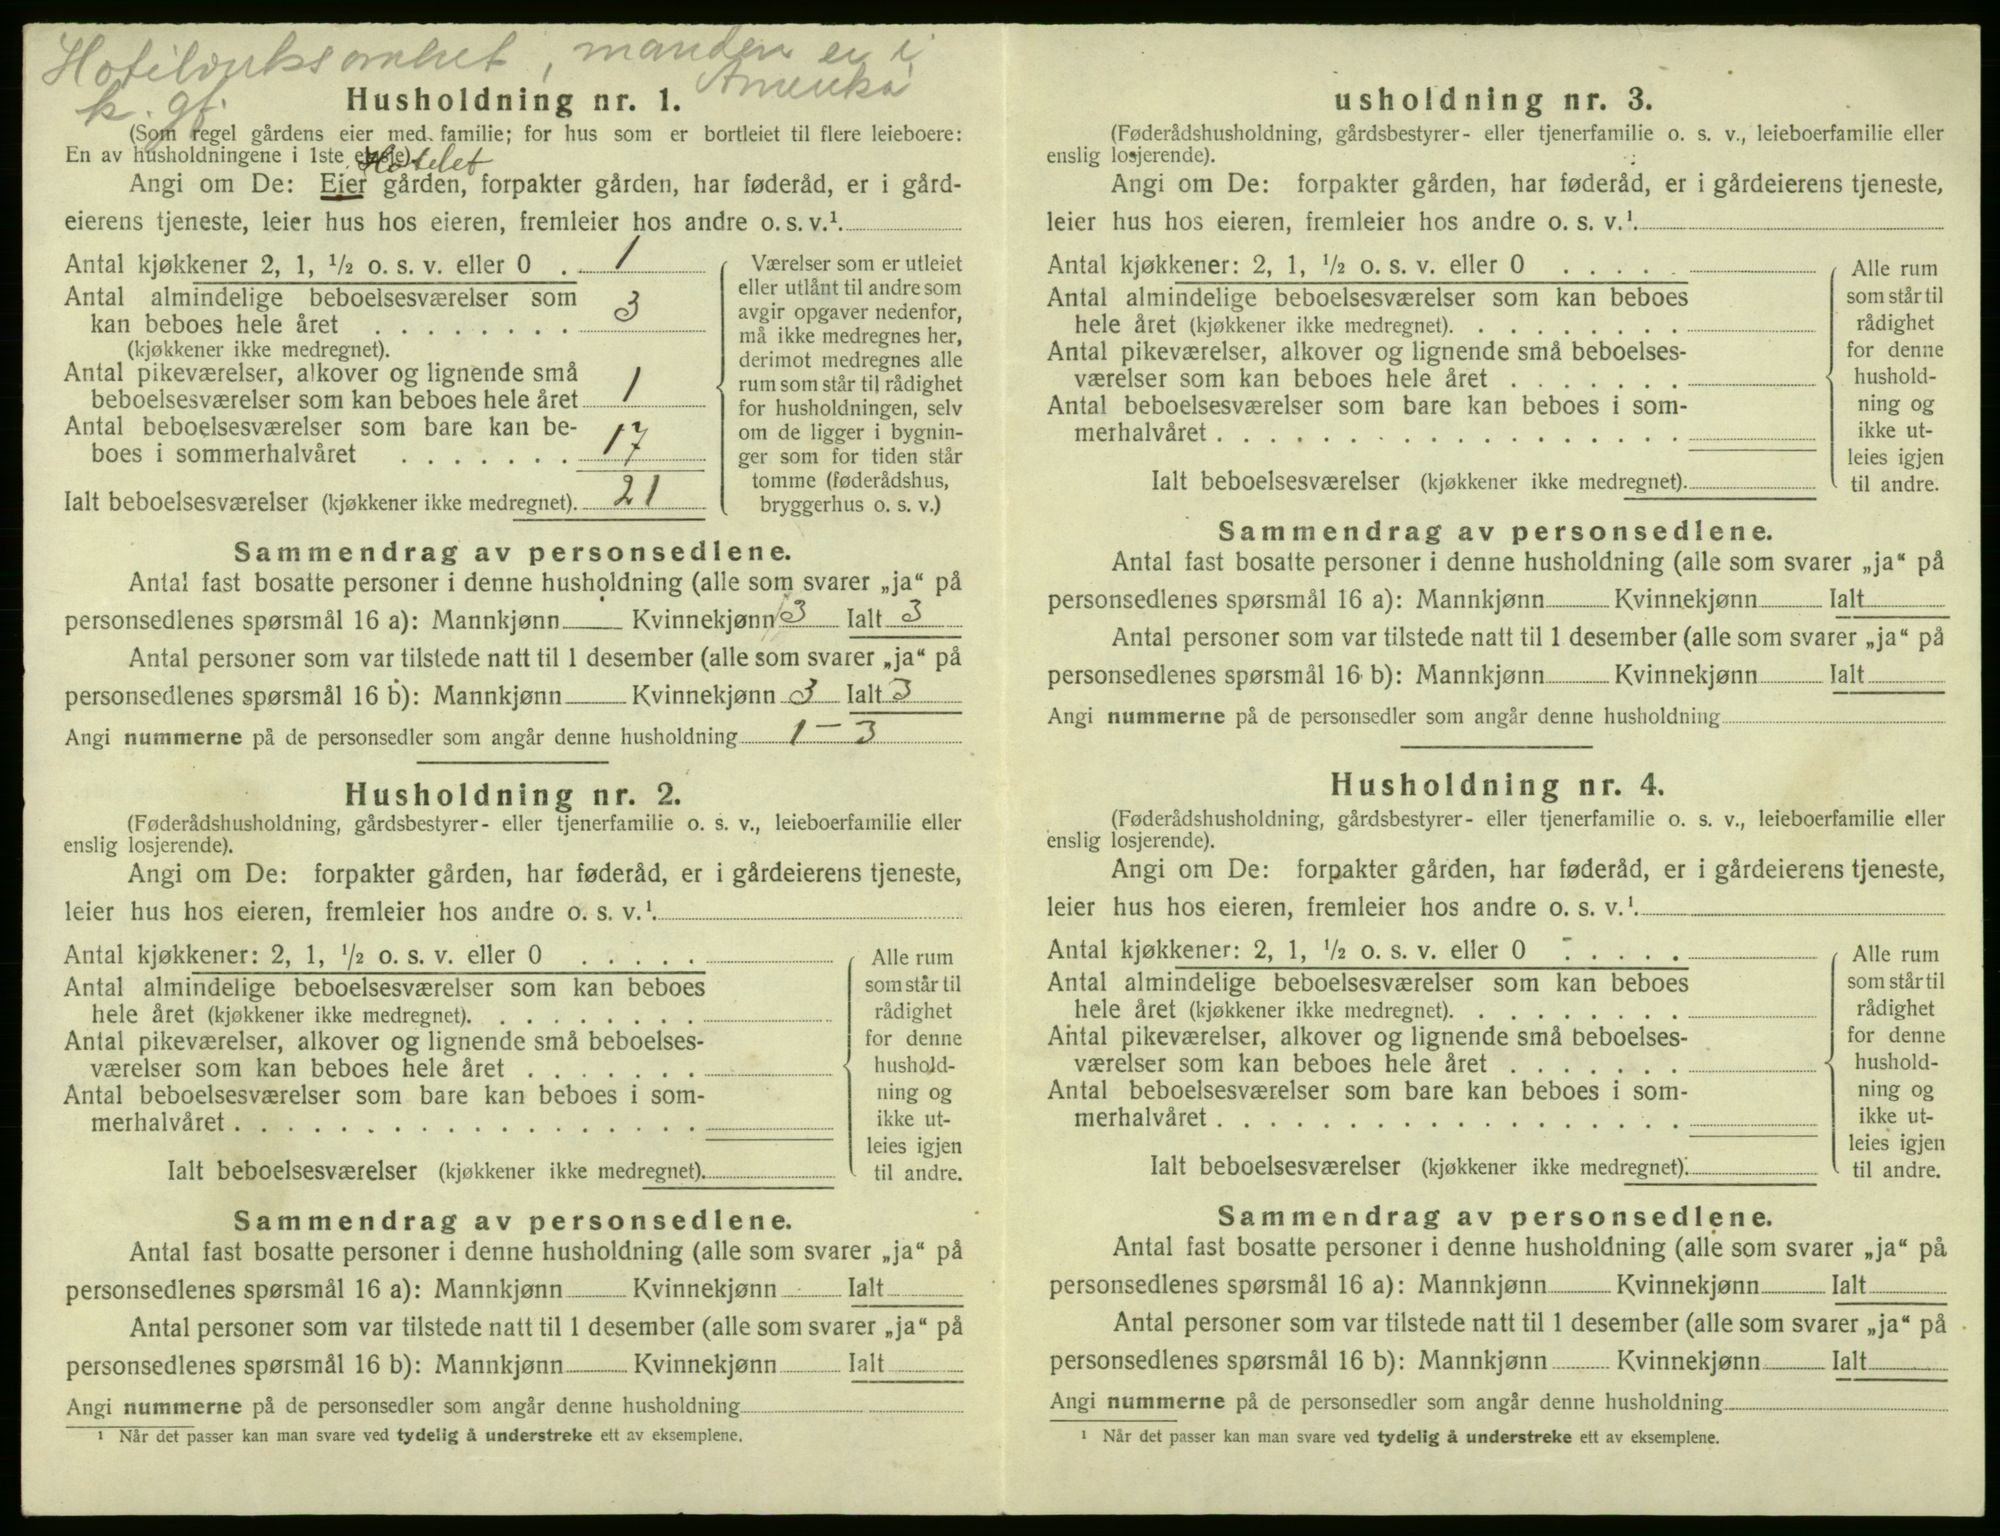 Hotelvirksomhet, manden er i
Amerika
k. gf.
Husholdning nr. 1.
(Som regel gårdens eier med familie; for hus som er bortleiet til flere leieboere:
En av husholdningene i 1ste etasje).
Hotelet
Angi om De: Eier gården, forpakter gården, har føderåd, er i gård-
eierens tjeneste, leier hus hos eieren, fremleier hos andre o. s. v.¹.
Antal kjøkkener 2, 1, ½ o. s. v. eller 0 . 1
Antal almindelige beboelsesværelser som
kan beboes hele året . . . . . . . . 3
(kjøkkener ikke medregnet).
Antal pikeværelser, alkover og lignende små
beboelsesværelser som kan beboes hele året 1
Antal beboelsesværelser som bare kan be-
boes i sommerhalvåret . . . . . . . 17
Ialt beboelsesværelser (kjøkkener ikke medregnet). 21
Værelser som er utleiet
eller utlånt til andre som
avgir opgaver nedenfor,
må ikke medregnes her,
derimot medregnes alle
rum som står til rådighet
for husholdningen, selv
om de ligger i bygnin-
ger som for tiden står
tomme (føderådshus,
bryggerhus o. s. v.)
Sammendrag av personsedlene.
Antal fast bosatte personer i denne husholdning (alle som svarer „ja“ på
personsedlenes spørsmål 16 a): Mannkjønn Kvinnekjønn 3 Ialt 3
Antal personer som var tilstede natt til 1 desember (alle som svarer „ja“ på
personsedlenes spørsmål 16 b): Mannkjønn Kvinnekjønn 3 Ialt 3
Angi nummerne på de personsedler som angår denne husholdning 1 - 3
Husholdning nr. 2.
(Føderådshusholdning, gårdsbestyrer- eller tjenerfamilie o. s. v., leieboerfamilie eller
enslig losjerende).
Angi om De: forpakter gården, har føderåd, er i gårdeierens tjeneste,
leier hus hos eieren, fremleier hos andre o. s. v.¹.
Antal kjøkkener: 2, 1, ½ o. s. v. eller 0 . . . . .
Antal almindelige beboelsesværelser som kan beboes
hele året (kjøkkener ikke medregnet). . . . . . . . .
Antal pikeværelser, alkover og lignende små beboelses-
værelser som kan beboes hele året . . . . . . .
Antal beboelsesværelser som bare kan beboes i som-
merhalvåret . . . . . . . . . . . . . . . . . .
Ialt beboelsesværelser (kjøkkener ikke medregnet).
Alle rum
som står til
rådighet
for denne
hushold-
ning og
ikke ut-
leies igjen
til andre.
Sammendrag av personsedlene.
Antal fast bosatte personer i denne husholdning (alle som svarer „ja“ på
personsedlenes spørsmål 16 a): Mannkjønn Kvinnekjønn Ialt
Antal personer som var tilstede natt til 1 desember (alle som svarer „ja“ på
personsedlenes spørsmål 16 b): Mannkjønn Kvinnekjønn Ialt
Angi nummerne på de personsedler som angår denne husholdning
¹ Når det passer kan man svare ved tydelig å understreke ett av eksemplene.
usholdning nr. 3.
(Føderådshusholdning, gårdsbestyrer- eller tjenerfamilie o. s. v., leieboerfamilie eller
enslig losjerende).
Angi om De: forpakter gården, har føderåd, er i gårdeierens tjeneste,
leier hus hos eieren, fremleier hos andre o. s. v.¹.
Antal kjøkkener: 2, 1, ½ o. s. v. eller 0 . . . . .
Antal almindelige beboelsesværelser som kan beboes
hele året (kjøkkener ikke medregnet). . . . . . . . .
Antal pikeværelser, alkover og lignende små beboelses-
værelser som kan beboes hele året . . . . . . .
Antal beboelsesværelser som bare kan beboes i som-
merhalvåret . . . . . . . . . . . . . . . . . .
Ialt beboelsesværelser (kjøkkener ikke medregnet).
Alle rum
som står til
rådighet
for denne
hushold-
ning og
ikke ut-
leies igjen
til andre.
Sammendrag av personsedlene.
Antal fast bosatte personer i denne husholdning (alle som svarer „ja“ på
personsedlenes spørsmål 16 a): Mannkjønn Kvinnekjønn Ialt
Antal personer som var tilstede natt til 1 desember (alle som svarer „ja“ på
personsedlenes spørsmål 16 b): Mannkjønn Kvinnekjønn Ialt
Angi nummerne på de personsedler som angår denne husholdning
Husholdning nr. 4.
(Føderådshusholdning, gårdsbestyrer- eller tjenerfamilie o. s. v., leieboerfamilie eller
enslig losjerende).
Angi om De: forpakter gården, har føderåd, er i gårdeierens tjeneste,
leier hus hos eieren, fremleier hos andre o. s. v.¹.
Antal kjøkkener: 2, 1, ½ o. s. v. eller 0 . . . . .
Antal almindelige beboelsesværelser som kan beboes
hele året (kjøkkener ikke medregnet). . . . . . . . .
Antal pikeværelser, alkover og lignende små beboelses-
værelser som kan beboes hele året . . . . . . .
Antal beboelsesværelser som bare kan beboes i som-
merhalvåret . . . . . . . . . . . . . . . . . .
Ialt beboelsesværelser (kjøkkener ikke medregnet).
Alle rum
som står til
rådighet
for denne
hushold-
ning og
ikke ut-
leies igjen
til andre.
Sammendrag av personsedlene.
Antal fast bosatte personer i denne husholdning (alle som svarer „ja“ på
personsedlenes spørsmål 16 a): Mannkjønn Kvinnekjønn Ialt
Antal personer som var tilstede natt til 1 desember (alle som svarer „ja“ på
personsedlenes spørsmål 16 b): Mannkjønn Kvinnekjønn Ialt
Angi nummerne på de personsedler som angår denne husholdning
¹ Når det passer kan man svare ved tydelig å understreke ett av eksemplene.